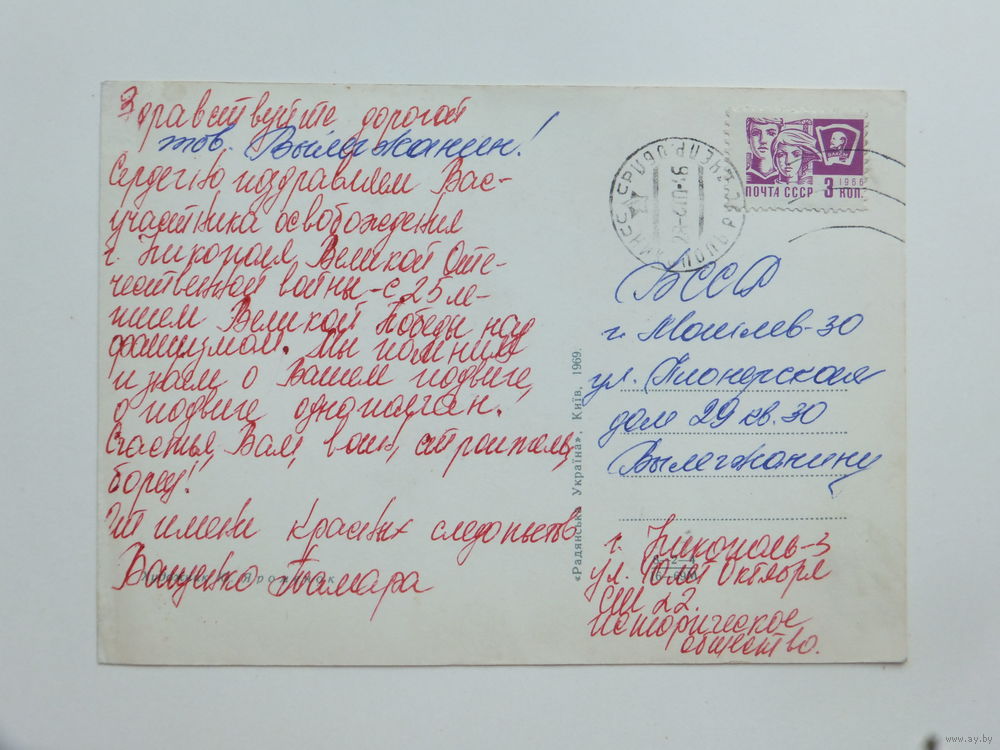 Здравствуйте дорогой
тов. Вылегжанин!
Сердечно поздравляем Вас-
участника освобождения
г. Никополя, Великой Оте-
чественной войны-с 25 ле-
тием Великой Победы над
фашизмом. Мы помним
и знаем о Вашем подвиге,
о подвиге однополчан.
Счастья, Вам, воин, строитель,
борец!
От имени красных следопытов
Ващенко Тамара
«Радянська Україна», Київ, 1969.
ПОЧТА СССР 3 КОП.
1966
БССР
г. Могилев-30
ул. Пионерская
дом 29 кв. 30
Вылегжанину
г. Никополь-3
ул. 40 лет Октября
сш 22.
историческое
общество.
www.ay.by